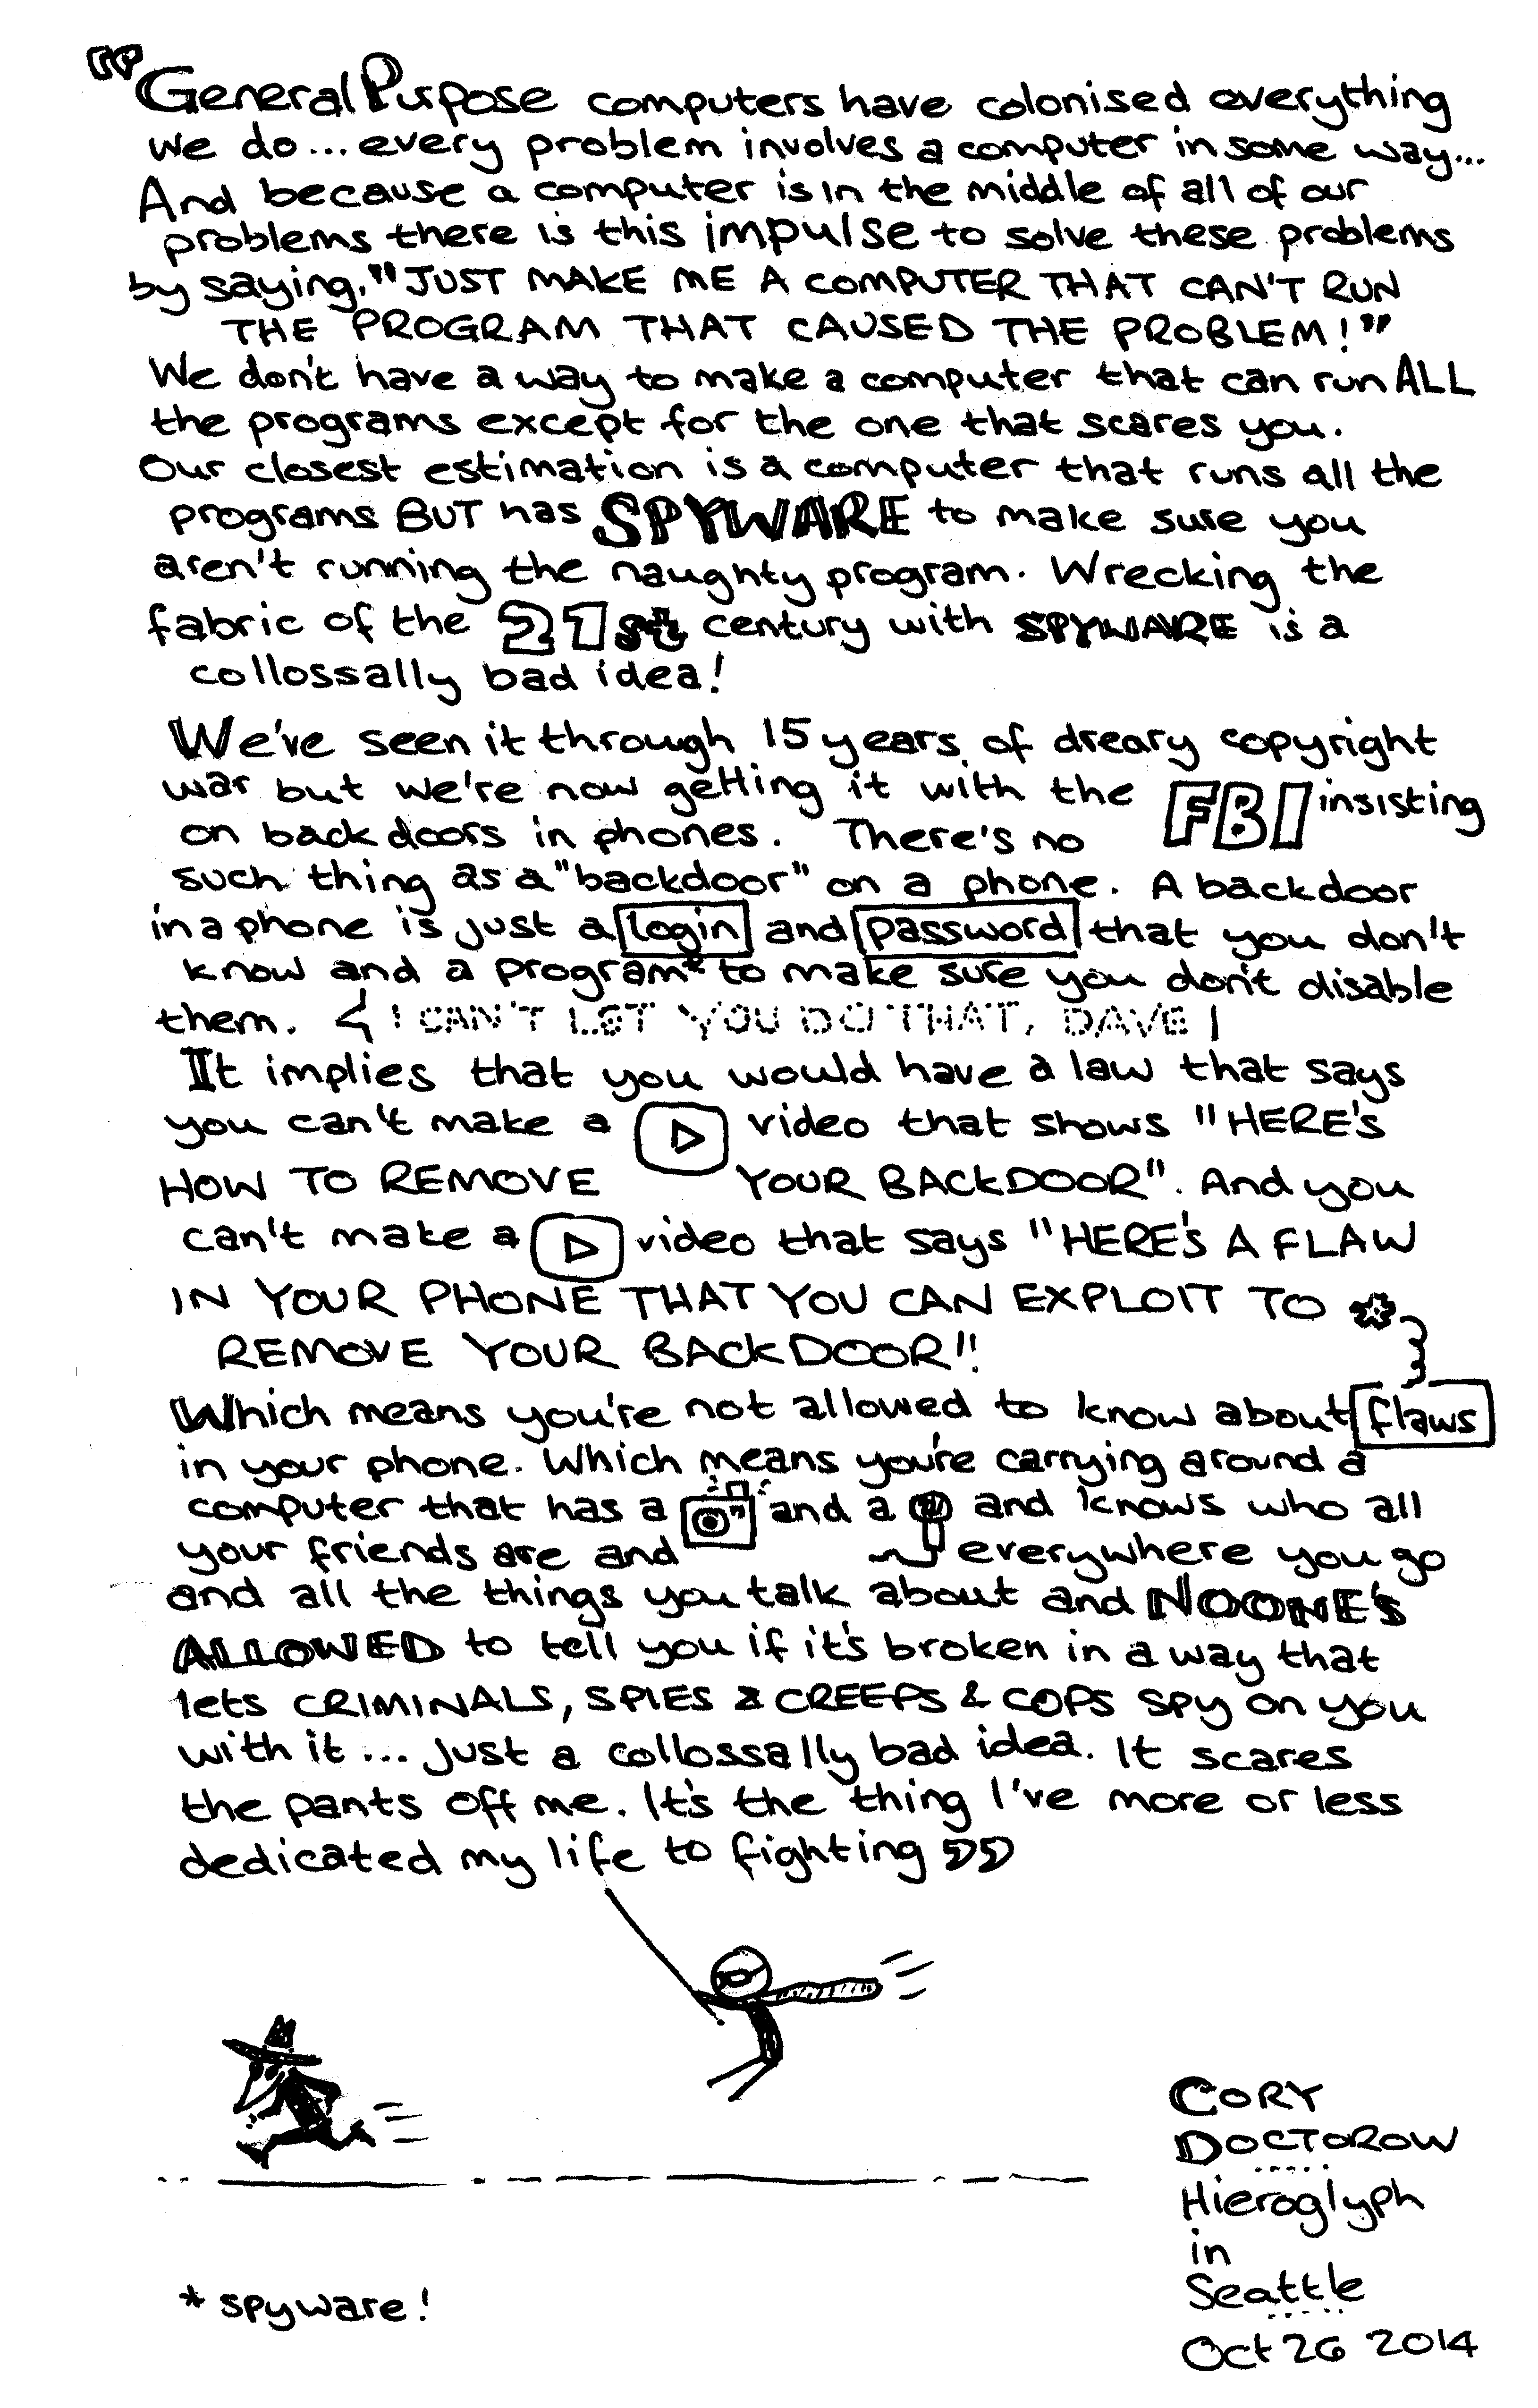 “General Purpose computers have colonised everything
we do... every problem involves a computer in some way...
And because a computer is in the middle of all of our
problems there is this impulse to solve these problems
by saying, "JUST MAKE ME A COMPUTER THAT CAN'T RUN
THE PROGRAM THAT CAUSED THE PROBLEM!"
We don't have a way to make a computer that can run ALL
the programs except for the one that scares you.
Our closest estimation is a computer that runs all the
programs BUT has SPYWARE to make sure you
aren't running the naughty program. Wrecking the
fabric of the 21st century with SPYWARE is a
collossally bad idea!
We've seen it through 15 years of dreary copyright
war but we're now getting it with the FBI insisting
on backdoors in phones. There's no
such thing as a "backdoor" on a phone. A backdoor
in a phone is just a login and password that you don't
know and a program* to make sure you don't disable
them. I CAN'T LET YOU DO THAT, DAVE
It implies that you would have a law that says
you can't make a video that shows "HERE'S
HOW TO REMOVE YOUR BACKDOOR". And you
can't make a video that says "HERE'S A FLAW
IN YOUR PHONE THAT YOU CAN EXPLOIT TO
REMOVE YOUR BACKDOOR!!
Which means you're not allowed to know about flaws
in your phone. Which means you're carrying around a
computer that has a and a and knows who all
your friends are and everywhere you go
and all the things you talk about and NOONE'S
ALLOWED to tell you if it's broken in a way that
lets CRIMINALS, SPIES & CREEPS & COPS SPY on you
with it... just a collossally bad idea. It scares
the pants off me. It's the thing I've more or less
dedicated my life to fighting”
CORY
DOCTOROW
Hieroglyph
in
Seattle
Oct 26 2014
* spyware!